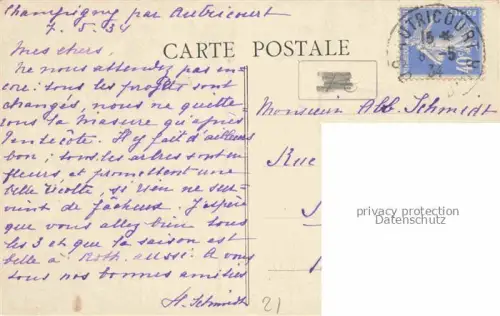 Champigny par Autricourt
7.5.34
Mes chers,
Ne nous attendez pas en-
core: tous les projets sont
changés, nous ne quitte-
rons la masure qu'après
Pentecôte. Il y fait d'ailleurs
bon; tous les arbres sont en
fleurs, et promettent une
belle récolte, si rien ne sur-
vient de fâcheux. J'espère
que vous allez bien tous
les 3 et que la saison est
belle à Roth. aussi. A vous
tous nos bonnes amitiés
A. Schmidt
CARTE POSTALE
AUTRICOURT
15 -
- 5
34
Monsieur Alb. Schmidt
Rue
privacy protection
Datenschutz
21